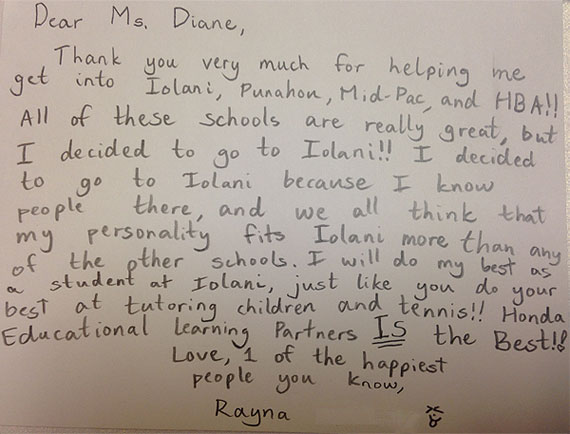 Dear Ms. Diane,
Thank you very much for helping me
get into Iolani, Punahou, Mid-Pac, and HBA!!
All of these schools are really great, but
I decided to go to Iolani!! I decided
to go to Iolani because I know
people there, and we all think that
my personality fits Iolani more than any
of the other schools. I will do my best as
a student at Iolani, just like you do your
best at tutoring children and tennis!! Honda
Educational Learning Partners IS the Best!!
Love, 1 of the happiest
people you know,
Rayna